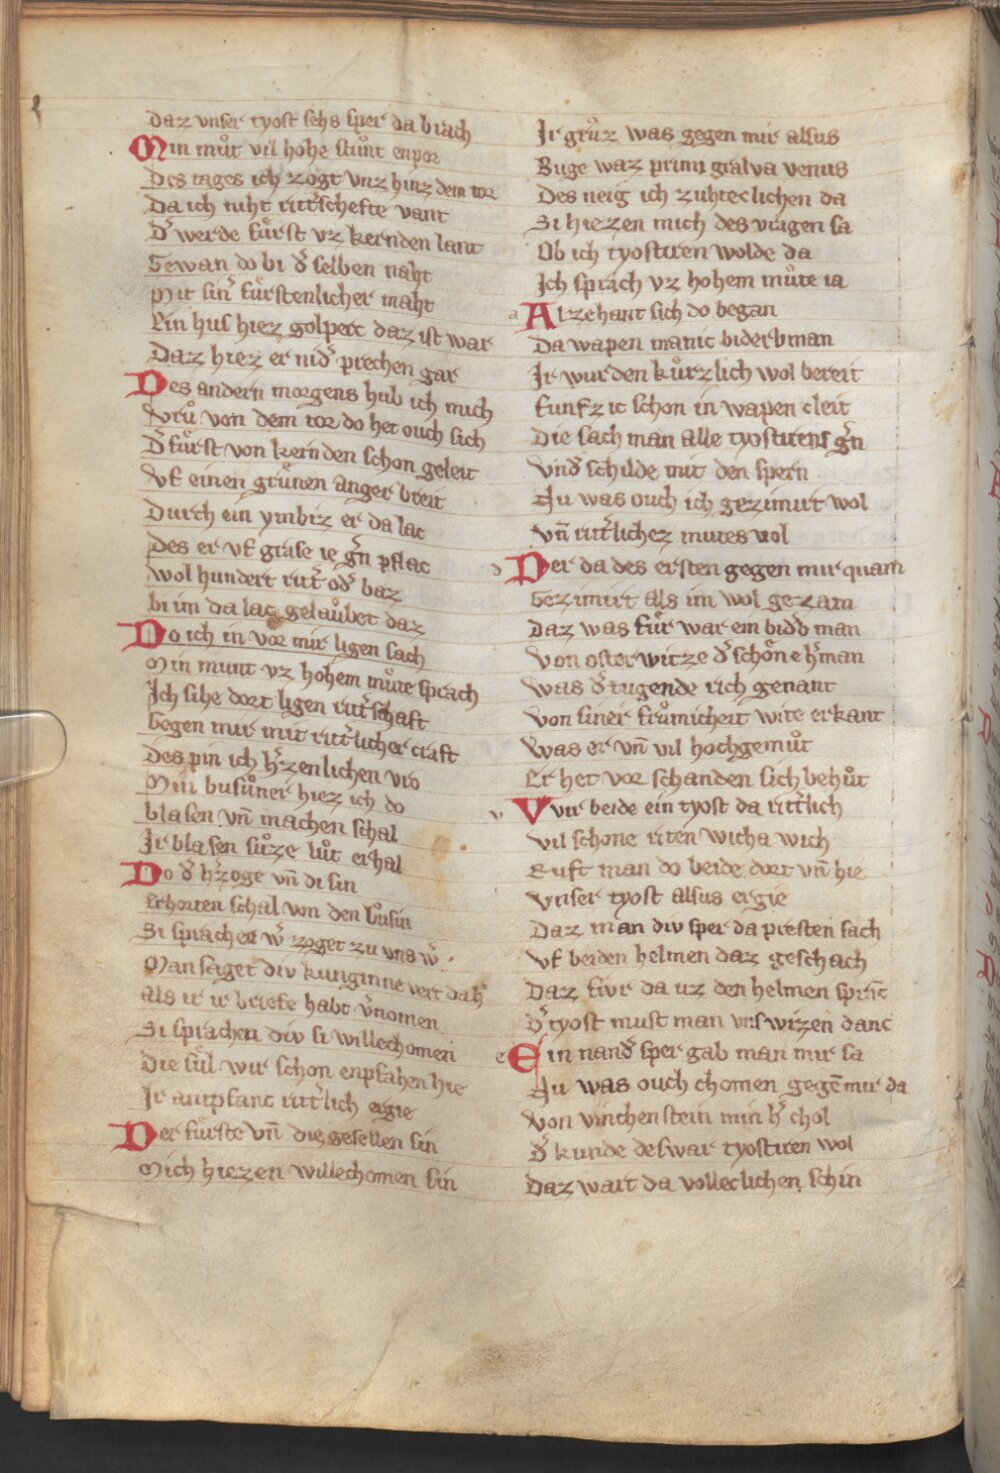 daz vnser tyost sehs sper da brach
Min můt vil hohe stůnt enpor
Des tages ich zogt vnz hinz dem tor
Da ich niht ritt̄schefte vant
D̄ werde fůrst vz kernden lant
Gewan do bi d̄ selben naht
Mit sin̄ fůrstenlicher maht
Ein hus hiez golpere daz ist war
Daz hiez er nid̄ prechen gar
Des andern morgens hub ich mich
Vrů von dem tor do het ouch sich
D̄ fůrst von kernden schon geleit
Vf einen grůnen anger breit
Durch ein ymbiz er da lac
Des er vf grase ie gn̄ pflac
Wol hundert ritt̄ od̄ baz
bi im da lac gelaůbet daz
Do ich in vor mir ligen sach
Min munt vz hohem můte sprach
Ich sihe dort ligen ritt̄schaft
Gegen mir mit ritt̄licher craft
Des pin ich h̄zenlichen vro
Min busůner hiez ich do
blasen vn̄ machen schal
Ir blasen sůze lůt erhal
Do d̄ h̄zoge vn̄ di sin
Erhorten schal von den bůsin
Si sprachen w̄ zoget zu vns w̄
Man saget div kunginne vert dah̄
Als ir ir briefe habt v̄nomen
Si sprachen div si willechomen
Die sůl wir schon enpfahen hie
Ir antpfanc ritt̄lich ergie
Der fůrste vn̄ die gesellen sin
Mich hiezen willechomen sin
Ir grůz was gegen mir alsus
Buge waz primi gralva venus
Des neig ich zuhteclichen da
Si hiezen mich des vragen sa
Ob ich tyostiren wolde da
Ich sprach vz hohem můte ia
a Alzehant sich do began
Da wapen manic biderbman
Ir wurden kůrzlich wol bereit
funfzic schon in wapen cleit
Die sach man alle tyostirens gn̄
Vnd̄ schilde mit den spern
Nu was ouch ich gezimirt wol
Vn̄ ritt̄lichez mutes vol
d Der da des ersten gegen mir quam
Gezimirt als im wol gezam
Daz was fůr war ein bid̄b man
Von osterwitze d̄ schône h̄man
Was d̄ tugende rich genant
Von siner frůmicheit wite erkant
Was er vn̄ vil hochgemůt
Er het vor schanden sich behůt
v Vvir beide ein tyost da ritt̄lich
Vil schone riten wicha wich
Ruft man do beide dort vn̄ hie
Vnser tyost alsus ergie
Daz man div sper da presten sach
Vf beiden helmen daz geschach
Daz fivr da uz den helmen spranc
D̄ tyost must man vns wizen danc
e Ein nand̄ sper gab man mir sa
Nu was ouch chomen gegē mir da
Von vinchenstein min h̄ chol
D̄ kunde deswar tyostiren wol
Daz wart da volleclichen schin